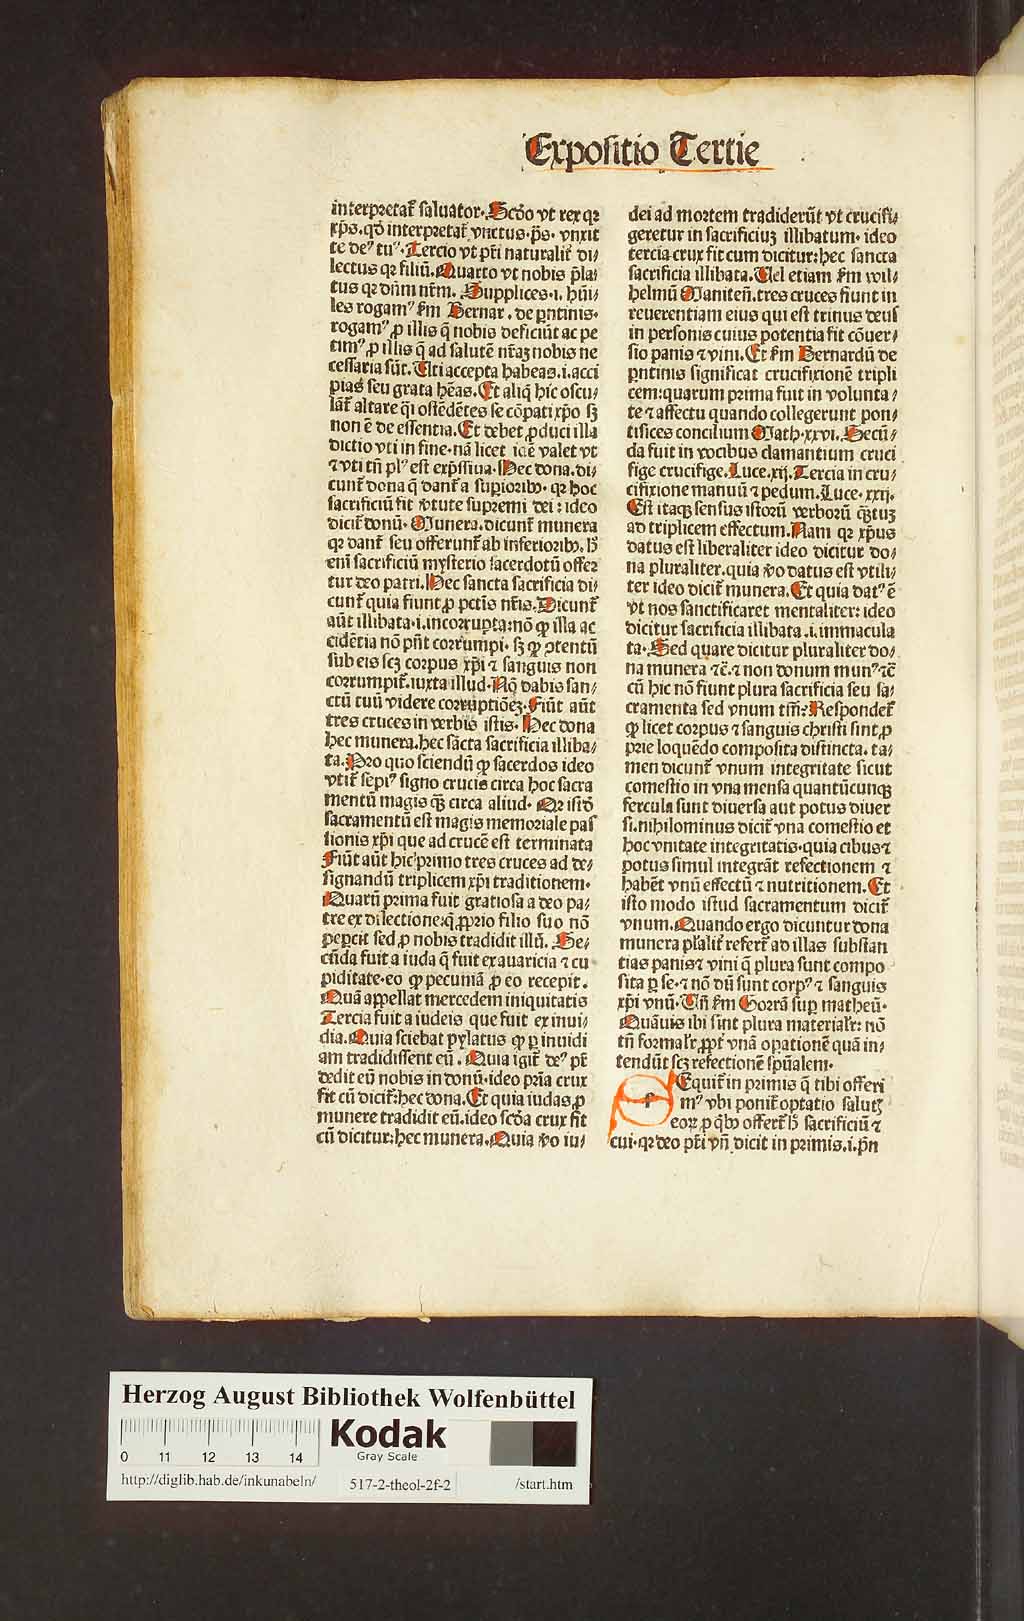 Expositio Tertie
interpretat̃ saluator. Scďo vt rex qꝛ
xp̃s. qď interpretat̃ vnctus. p̃s. vnxit
te deꝰ tuꝰ. Tercio vt pr̃i naturalit̃ di⸗
lectus qꝛ filiũ. Quarto vt nobis p̃la⸗
tus qꝛ dñm nr̃m. Supplices .i. hũi⸗
les rogamꝰ ẜm Bernar. de ꝑntinis.
rogamꝰ ꝓ illis q̃ nobis deficiũt ac pe
timꝰ ꝓ illis q̃ ad salutẽ nr̃aꝫ nobis ne
cessaria sũt. Uti accepta habeas .i. acci
pias seu grata hẽas. Et aliq̃ hic oscu⸗
lãt̃ altare q̃i ostẽdẽtes se cõpati xp̃o sꝫ
non ẽ de essentia. Et debet ꝓduci illa
dictio vti in fine. nã licet idẽ valet vt
⁊ vti tñ plꝰ est exp̃ssiua. Hec dona. di⸗
cunt̃ dona q̃ dant̃ a supioribꝰ. qꝛ hoc
sacrificiũ fit v̓tute supremi dei: ideo
dicit̃ donũ. Munera. dicunt̃ munera
qꝛ dant̃ seu offerunt̃ ab inferioribꝰ. h̃
eni sacrificiũ mysterio sacerdotũ offer
tur deo patri. Hec sancta sacrificia di⸗
cunt̃ quia fiunt ꝓ pctĩs nr̃is. Dicunt̃
aũt illibata .i. incorrupta: nõ ꝙ illa ac
cidẽtia nõ pñt corrumpi. sꝫ ꝙ ꝯtentũ
sub eis scꝫ corpus xp̃i ⁊ sanguis non
corrumpit̃. iuxta illud. Nõ dabis san⸗
ctũ tuũ videre corruptiõeꝫ. Fiũt aũt
tres cruces in verbis istis. Hec dona
hec munera. hec sãcta sacrificia illiba⸗
ta. Pro quo sciendũ ꝙ sacerdos ideo
vtit̃ sepiꝰ signo crucis circa hoc sacra
mentũ magis qꝫ̃ circa aliud. Qꝛ istď
sacramentũ est magis memoriale pas
sionis xp̃i que ad crucẽ est terminata
Fiũt aũt hic primo tres cruces ad de⸗
signandũ triplicem xp̃i traditionem.
Quarũ prima fuit gratiosa a deo pa⸗
tre ex dilectione: q̃ ꝓprio filio suo nõ
peꝑcit sed ꝓ nobis tradidit illũ. Se⸗
cũda fuit a iuda q̃ fuit ex auaricia ⁊ cu
piditate. eo ꝙ pecuniã ꝓ eo recepit.
Quã appellat mercedem iniquitatis
Tercia fuit a iudeis que fuit ex inui⸗
dia. Quia sciebat pylatus ꝙ ꝑ inuidi
am tradidissent eũ. Quia igit̃ deꝰ pr̃
dedit eũ nobis in donũ. ideo pr̃ia crux
fit cũ dicit̃: hec dona. Et quia iudas ꝓ
munere tradidit eũ. ideo scďa crux fit
cũ dicitur: hec munera. Quia v̓o iu⸗
dei ad mortem tradiderũt vt crucifi⸗
geretur in sacrificiuꝫ illibatum. ideo
tercia crux fit cum dicitur: hec sancta
sacrificia illibata. Uel etiam ẜm wil⸗
helmũ Maniteñ. tres cruces fiunt in
reuerentiam eius qui est trinus deus
in personis cuius potentia fit cõuer⸗
sio panis ⁊ vini. Et ẜm Bernardũ de
ꝑntinis significat crucifixionẽ tripli
cem: quarum prima fuit in volunta⸗
te ⁊ affectu quando collegerunt pon⸗
tifices concilium Math. xxvi. Secũ⸗
da fuit in vocibus clamantium cruci
fige crucifige. Luce. xij. Tercia in cru⸗
cifixione manuũ ⁊ pedum. Luce. xxij.
Est itaqꝫ sensus istorũ verborũ qꝫ̃tuꝫ
ad triplicem effectum. Nam qꝛ xp̃us
datus est liberaliter ideo dicitur do⸗
na pluraliter. quia v̓o datus est vtili⸗
ter ideo dicit̃ munera. Et quia datꝰ ẽ
vt nos sanctificaret mentaliter: ideo
dicitur sacrificia illibata .i. immacula
ta. Sed quare dicitur pluraliter do⸗
na munera ⁊c̃. ⁊ non donum munꝰ ⁊c̃
cũ hic nõ fiunt plura sacrificia seu sa⸗
cramenta sed vnum tm̃: Respondet̃
ꝙ licet corpus ⁊ sanguis christi sint ꝓ
prie loquẽdo composita distincta. ta⸗
men dicunt̃ vnum integritate sicut
comestio in vna mensa quantũcunqꝫ
fercula sunt diuersa aut potus diuer
si. nihilominus dicit̃ vna comestio et
hoc vnitate integritatis. quia cibus ⁊
potus simul integrãt refectionem ⁊
habẽt vnũ effectũ ⁊ nutritionem. Et
isto modo istud sacramentum dicit̃
vnum. Quando ergo dicuntur dona
munera pl̃alit̃ refert̃ ad illas substan
tias panis ⁊ vini q̃ plura sunt compo
sita ꝑ se. ⁊ nõ dũ sunt corpꝰ ⁊ sanguis
xp̃i vnũ. Uñ ẜm Gorrã sup matheũ.
Quãuis ibi sint plura materialr̃: nõ
tñ formalr̃ ꝓpt̃ vnã opationẽ quã in⸗
tendũt scꝫ refectionẽ spũalem.
Equit̃ in primis q̃ tibi offeri
mꝰ vbi ponit̃ optatio salutꝭ
eoꝝ ꝓ qbꝰ offert̃ h̃ sacrificiũ ⁊
cui. qꝛ deo pr̃i vñ dicit in primis .i. p̃n
Herzog August Bibliothek Wolfenbüttel
Kodak
Gray Scale
0 11 12 13 14
http://diglib.hab.de/inkunabeln/ 517-2-theol-2f-2 /start.htm